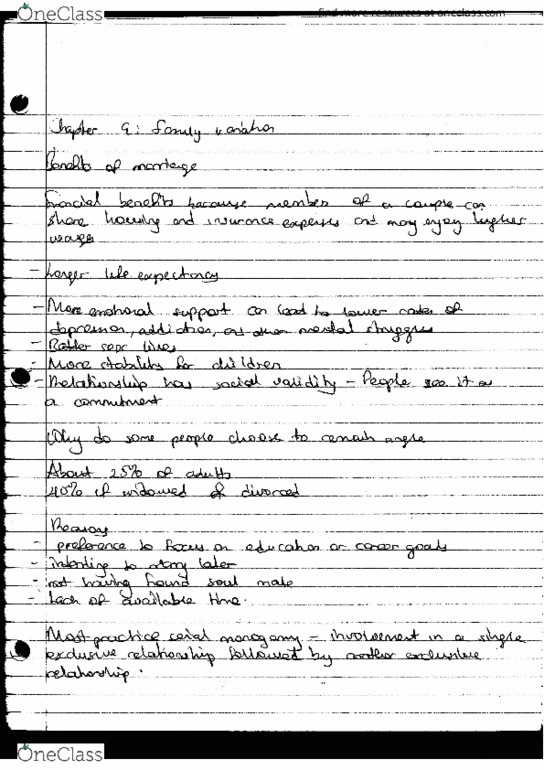 OneClass
find more resources at oneclass.com
Chapter 9: Family variation
Benefits of marriage
Financial benefits because member of a couple can
share housing and insurance expenses and may enjoy higher
wages
- Longer life expectancy
- More emotional support can lead to lower rates of
depression, addiction, and other mental struggles
- Better sex lives
- More stability for children
- Relationship has social validity - People see it as
a commitment
Why do some people choose to remain single
About 25% of adults
40% if widowed of divorced
Reasons
- preference to focus on education or career goals
- intending to marry later
- not having found soul mate
- Lack of available time.
Most practice serial monogamy - involvement in a single
exclusive relationship followed by another exclusive
relationship.
OneClass